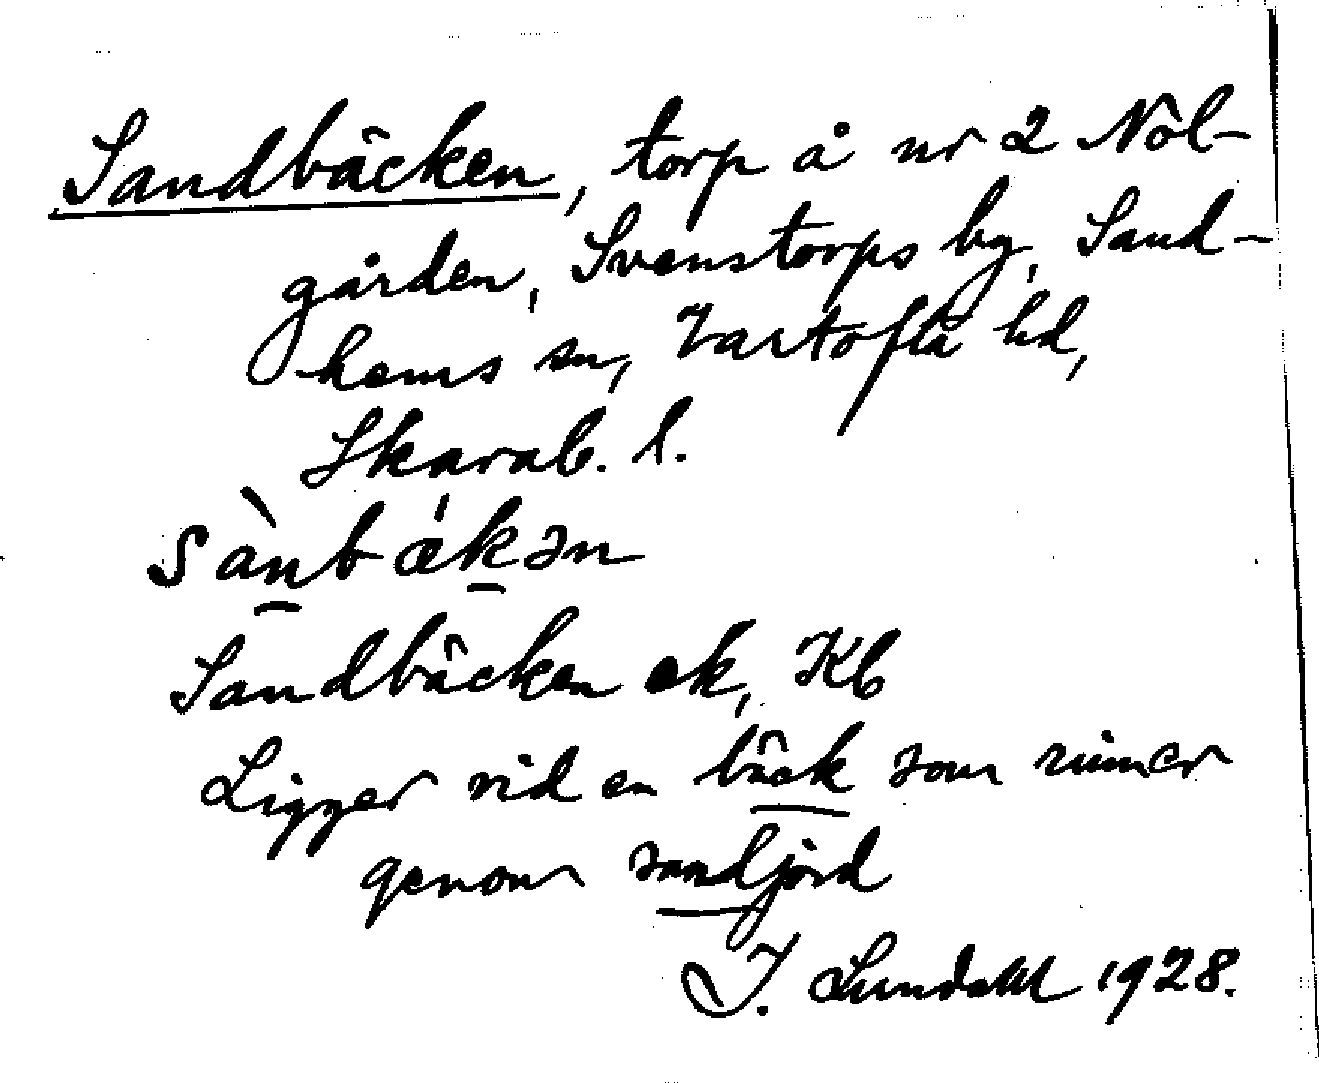 Sandbäcken, torp å nr 2 Nol-
gården, Svenstorps by, Sand-
hems sn, Vartofta hd,
Skarab. l.
sànbǽkən
Sandbäcken ek, Kb
Ligger vid en bäck som rinner
genom sandjord
I. Lundahl 1928.